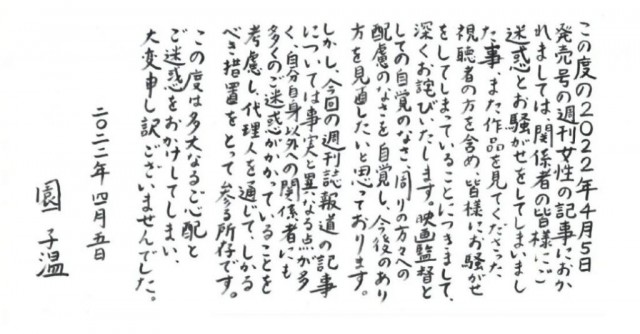 この度の2022年4月5日
発売号の週刊女性の記事におか
れましては、関係者の皆様にご
迷惑とお騒がせをしてしまいまし
た事、また作品を見てくださった、
視聴者の方を含め、皆様にお騒がせ
をしてしまっていることにつきまして、
深くお詫びいたします。映画監督と
しての自覚のなさ、周りの方々への
配慮のなさを自覚し、今後のあり
方を見直したいと思っております。
しかし、今回の週刊誌報道の記事
については事実と異なる点が多
く、自分自身以外への関係者にも
多くのご迷惑がかかっていることを
考慮し、代理人を通じて、しかる
べき措置をとって参る所存です。
この度は多大なるご心配と
ご迷惑をおかけしてしまい、
大変申し訳ございませんでした。
二〇二二年四月五日
園子温